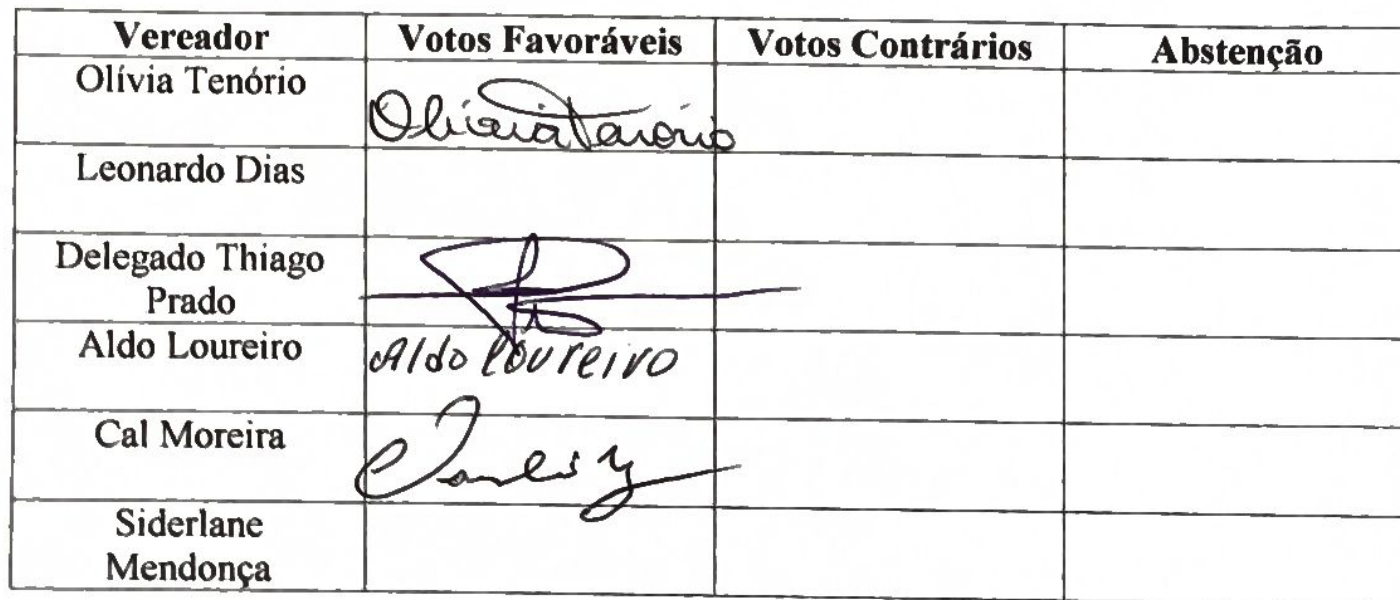 Vereador Votos Favoráveis Votos Contrários Abstenção
Olívia Tenório Olivia Tenório
Leonardo Dias
Delegado Thiago
Prado
Aldo Loureiro Aldo Loureiro
Cal Moreira
Siderlane
Mendonça